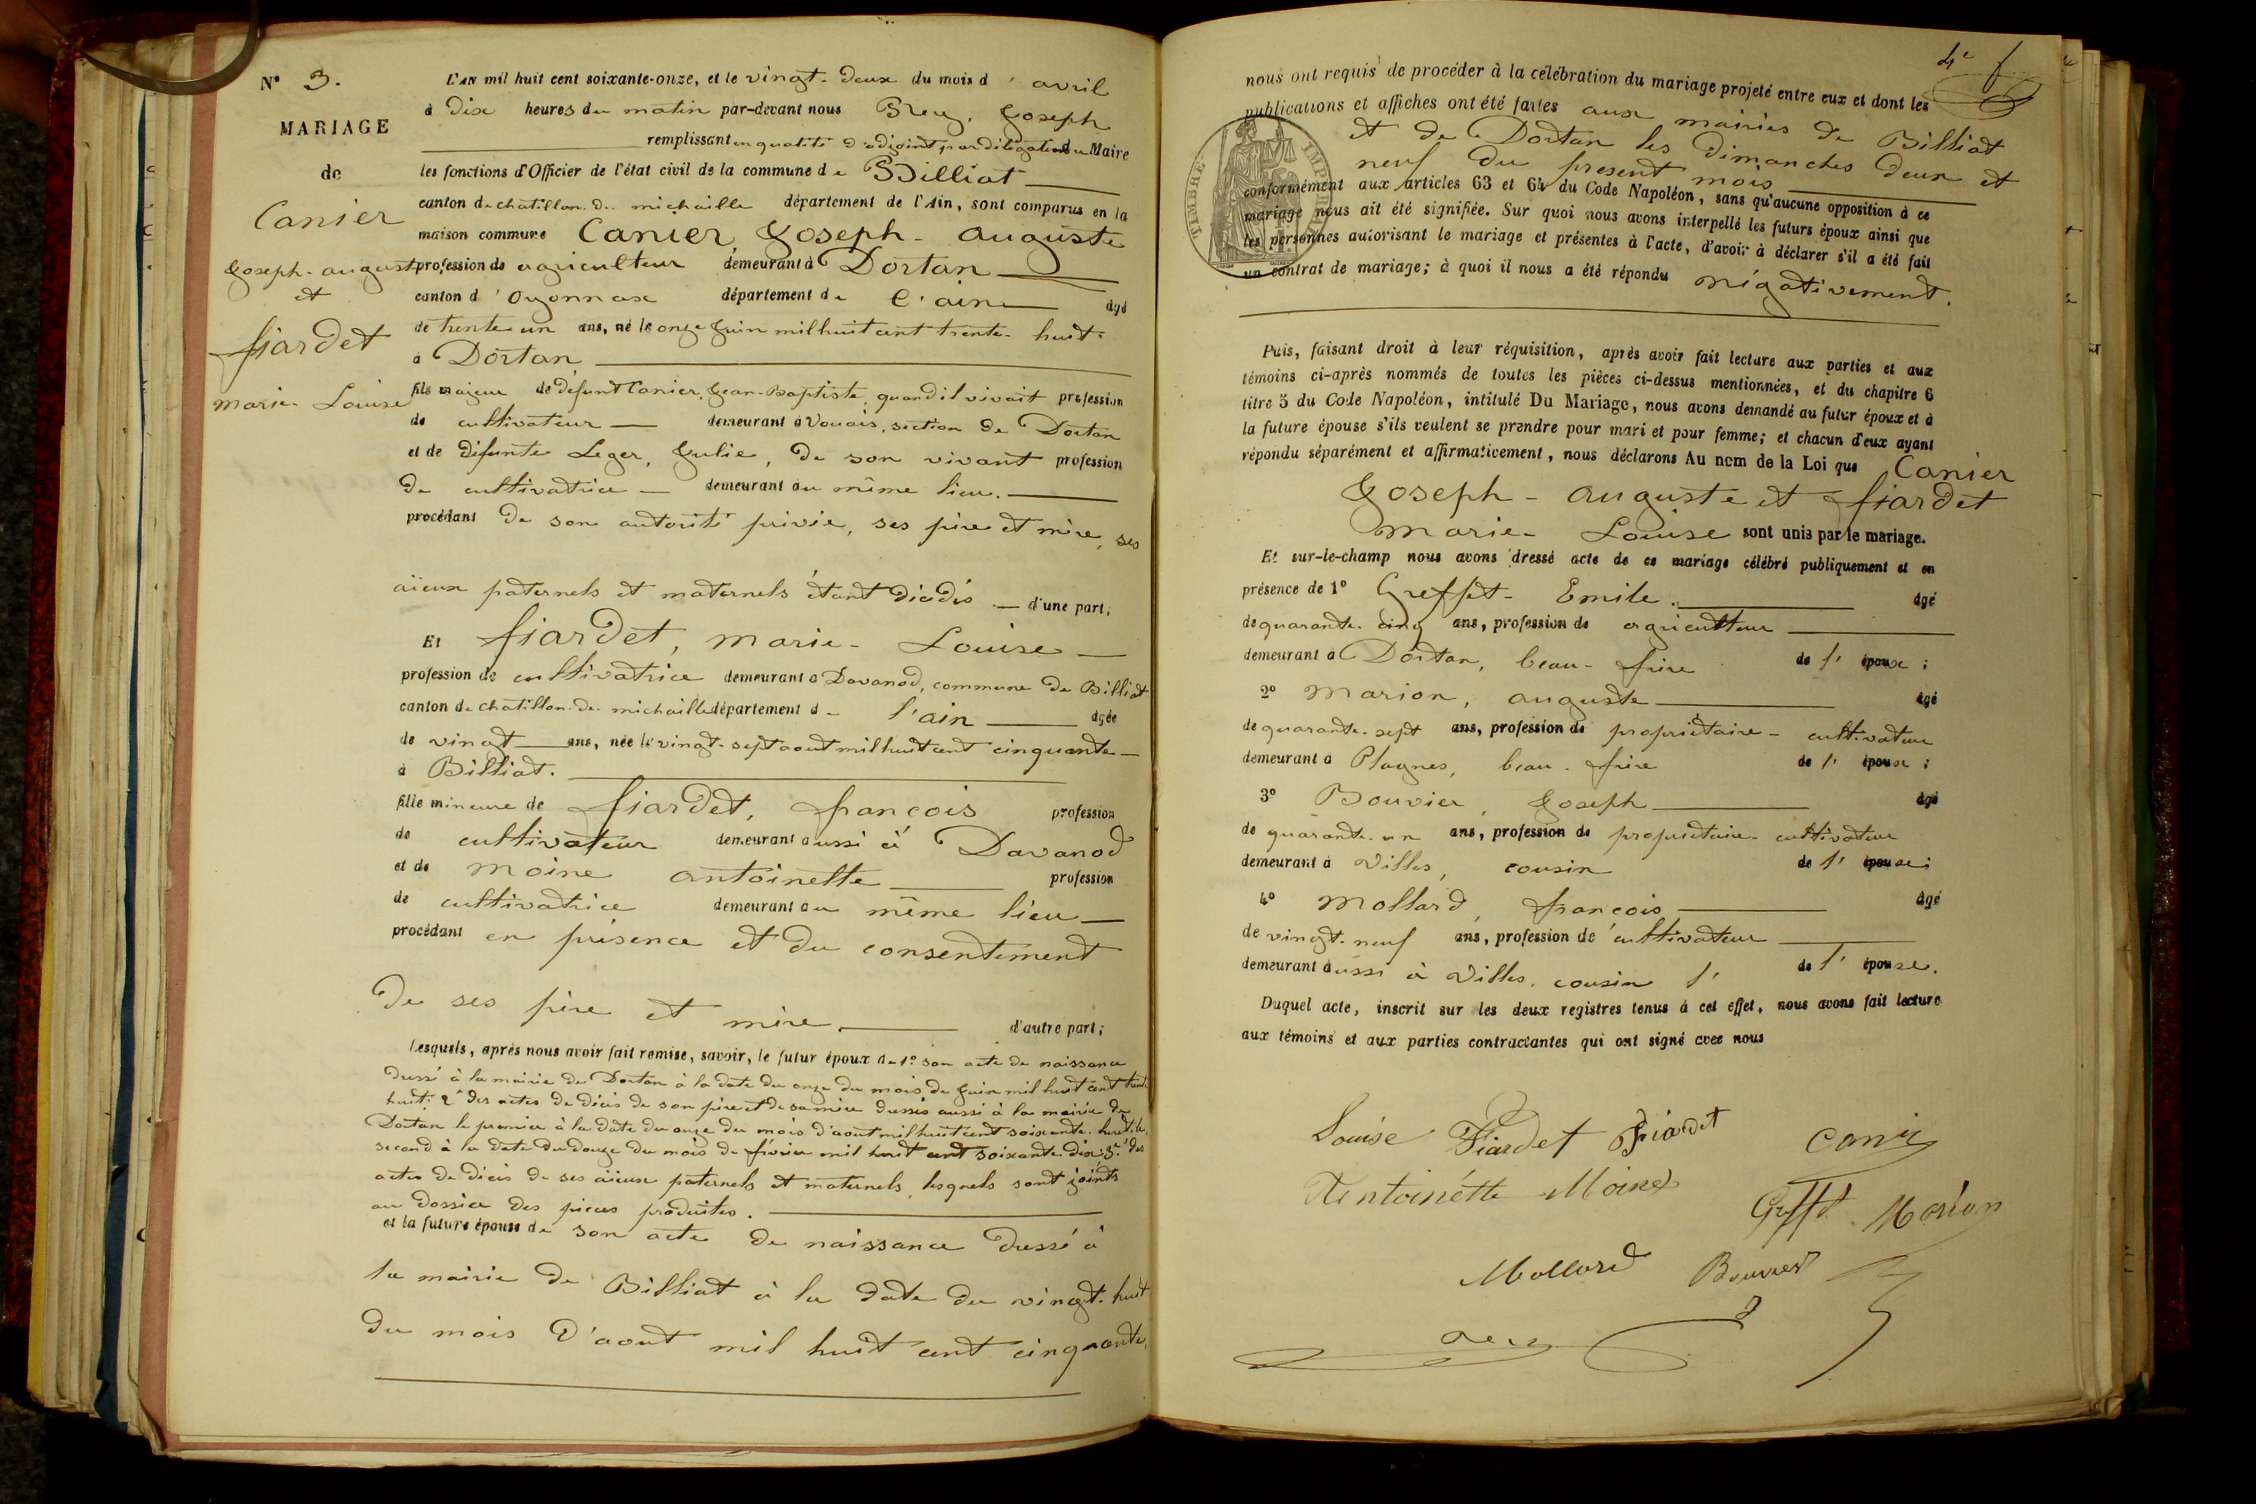 N° 3.
MARIAGE
de
Canier
Joseph-auguste
et
fiardet
marie-Louise
L'AN mil huit cent soixante-onze, et le vingt-deux du mois d'avril
à dix heures du matin par-devant nous Joseph
remplissant en qualité d'adjoint par délégation du Maire
les fonctions d'Officier de l'état civil de la commune de Billiat
canton de chatillon-de-michaille département de l'Ain, sont comparus en la
maison commune Canier Joseph-auguste
profession de agriculteur demeurant à Dortan
canton d'Oyonnax département de l'ain âgé
de trente-un ans, né le onze Juin mil huit cent trente-huit
à Dortan
fils majeur de défunt Canier, Jean-Baptiste, quand il vivait profession
de cultivateur demeurant à Vouais, section de Dortan
et de défunte Leger, Julie, de son vivant profession
de cultivatrice demeurant au même lieu.
procédant de son autorité privée, ses père et mère, ses
aïeux paternels et maternels étant décédés d'une part;
Et fiardet, marie-Louise
profession de cultivatrice demeurant à Davanod, commune de Billiat
canton de chatillon-de-michaille département de l'ain âgée
de vingt ans, née le vingt-sept aout mil huit cent cinquante
à Billiat.
fille mineure de fiardet, françois profession
de cultivateur demeurant aussi à Davanod
et de moine antoinette profession
de cultivatrice demeurant au même lieu
procédant en présence et du consentement
de ses père et mère d'autre part;
Lesquels, après nous avoir fait remise, savoir, le futur époux de 1° son acte de naissance
dressé à la mairie de Dortan à la date du onze du mois de Juin mil huit cent trente
huit; 2° des actes de décès de son père et de sa mère dressés aussi à la mairie de
Dortan le premier à la date du onze du mois d'aout mil huit cent soixante-huit, le
second à la date du douze du mois de février mil huit cent soixante-dix; 3° des
actes de décès de ses aïeux paternels et maternels, lesquels sont joints
au dossier des pièces produites.
et la future épouse de son acte de naissance dressé à
la mairie de Billiat à la date du vingt-huit
du mois d'aout mil huit cent cinquante.
4e f
nous ont requis de procéder à la célébration du mariage projeté entre eux et dont les
publications et affiches ont été faites aux mairies de Billiat
et de Dortan les dimanches deux et
neuf du présent mois
conformément aux articles 63 et 64 du Code Napoléon, sans qu'aucune opposition à ce
mariage nous ait été signifiée. Sur quoi nous avons interpellé les futurs époux ainsi que
les personnes autorisant le mariage et présentes à l'acte, d'avoir à déclarer s'il a été fait
un contrat de mariage; à quoi il nous a été répondu négativement.
TIMBRE IMPÉRIAL
Puis, faisant droit à leur réquisition, après avoir fait lecture aux parties et aux
témoins ci-après nommés de toutes les pièces ci-dessus mentionnées, et du chapitre 6
titre 5 du Code Napoléon, intitulé Du Mariage, nous avons demandé au futur époux et à
la future épouse s'ils veulent se prendre pour mari et pour femme; et chacun d'eux ayant
répondu séparément et affirmativement, nous déclarons Au nom de la Loi que Canier
Joseph-auguste et fiardet
marie-Louise sont unis par le mariage.
Et sur-le-champ nous avons dressé acte de ce mariage célébré publiquement et en
présence de 1° Greffet-Emile. âgé
de quarante-cinq ans, profession de agriculteur
demeurant à Dortan, beau-frère de l'épouse;
2° marion, auguste âgé
de quarante-sept ans, profession de propriétaire-cultivateur
demeurant à Plagnes, beau-frère de l'épouse;
3° Bouvier, Joseph âgé
de quarante-un ans, profession de propriétaire-cultivateur
demeurant à Villes, cousin de l'épouse;
4° mollard, françois âgé
de vingt-neuf ans, profession de cultivateur
demeurant aussi à Villes, cousin l' de l'épouse.
Duquel acte, inscrit sur les deux registres tenus à cet effet, nous avons fait lecture
aux témoins et aux parties contractantes qui ont signé avec nous
Louise Fiardet Fiardet Canier
Antoinette Moine
Greffet Marion
Mollard Bouvier